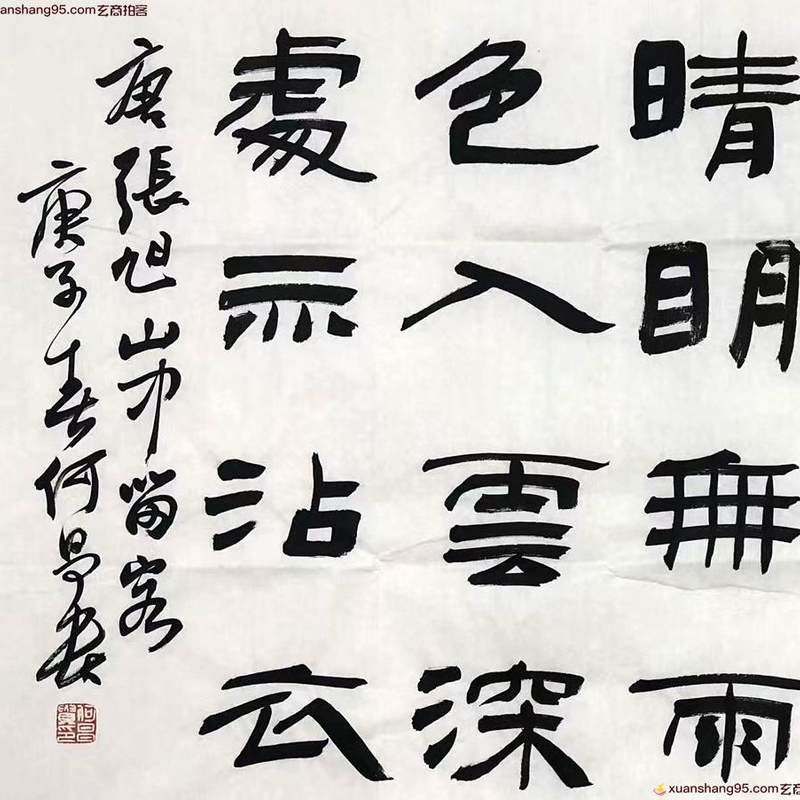 anshang95.com玄商拍客
晴明無雨
色入雲深
處亦沾衣
唐張旭山中留客
庚子春何昌
xuanshang95.com玄商